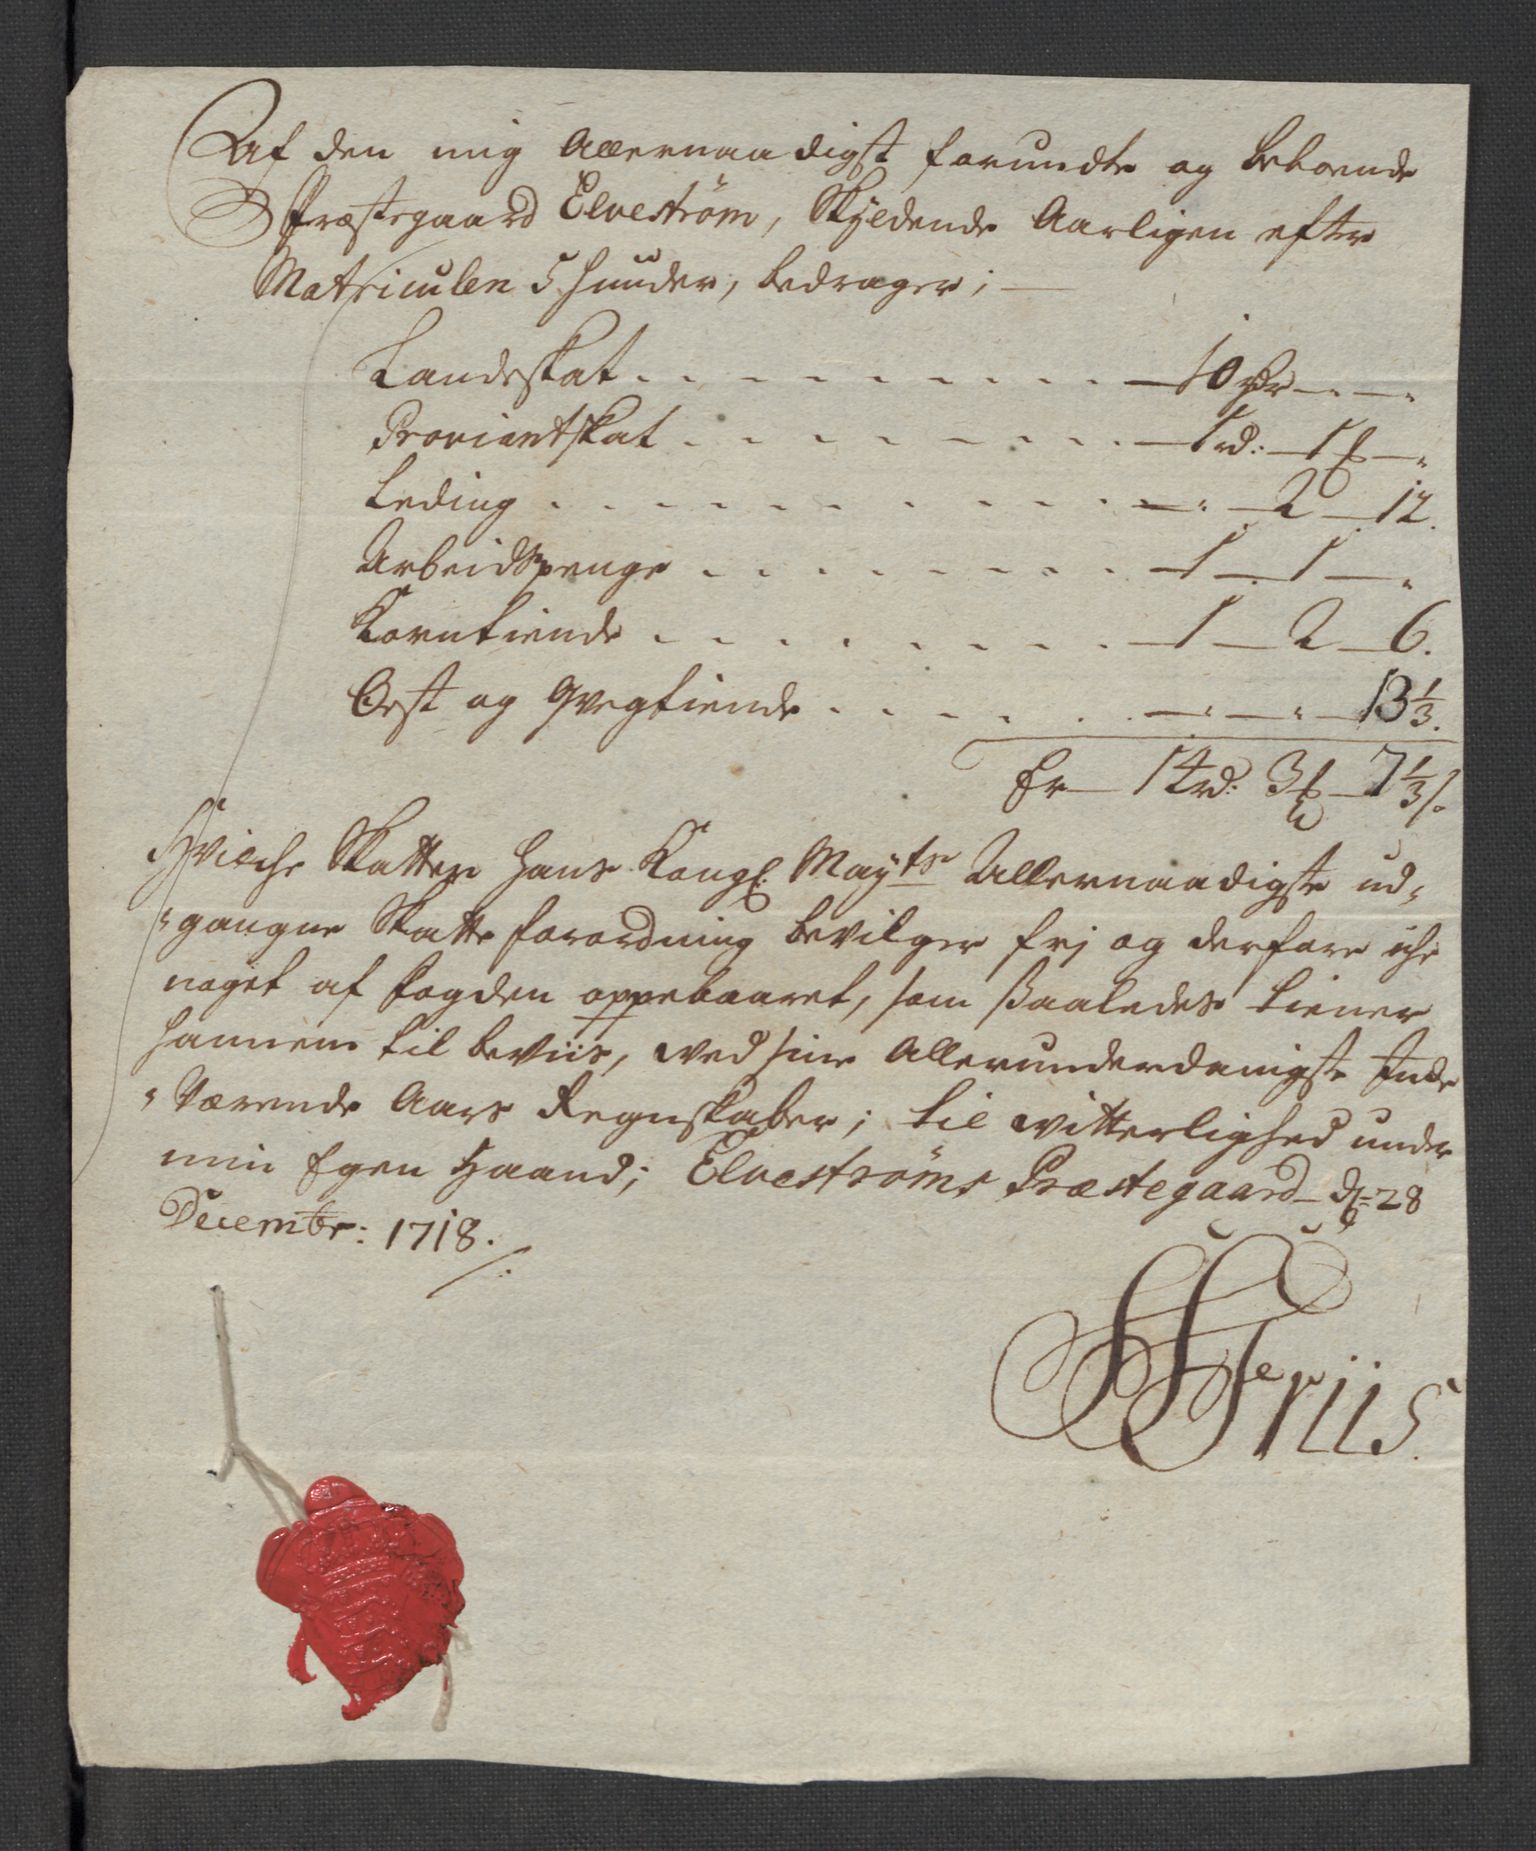 Af den mig Allernaadigst forundte og beboende
Præstegaard Elvestrøm, Skÿldende Aarligen efter
Matriculen 5 huuder, bedrager;
Landskat . . . . . . . . . . 10 rdr — —
Proviantskat . . . . . . . . 1 rd: — 1 ß — „
Leding . . . . . . . . . . — „ — 2 — 12.
Arbeidspenge . . . . . . . . — 1 — 1 — „
Korntiende . . . . . . . . — 1 — 2 — 6.
Ost og Qvegtiende . . . . . . — „ — „ — 13 1/3.
Er — 14 rd: 3 ß — 7 1/3 /.
Hvilche Skatter Hans Kongl: Mayts Allernaadigste ud„
„gangne Skatte forordning bevilger frj og derfore iche
noget af fogden oppebaaret, som ßaaledes tiener
hannem til beviis, wed sine Allerunderdanigste Inde
„Værende Aars Regnskaber; til witterlighed under
min Egen Haand; Elvestrøms Præstegaard d: 28
Decembr: 1718.
Friis.